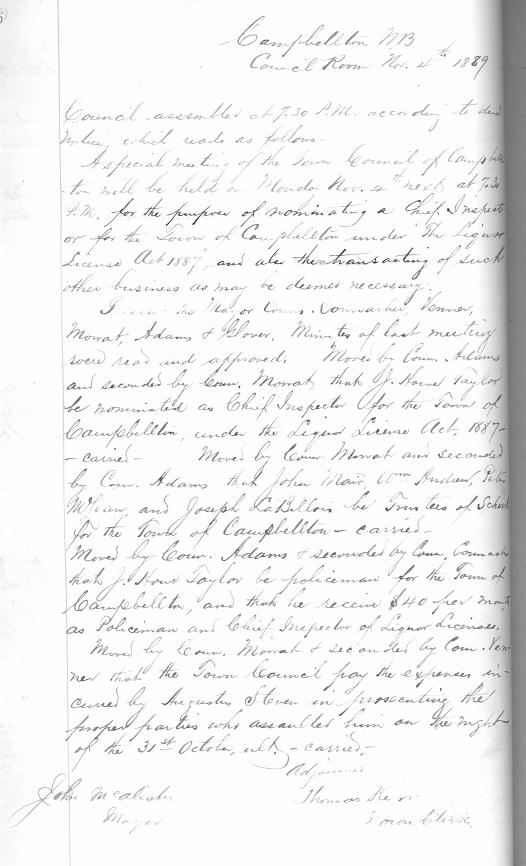 Campbellton NB
Council Room Nov. 4th 1889
Council assembled at 7.30 P.M. according to due
notice, which reads as follows-
A special meeting of the Town Council of Campbell-
-ton will be held on Monday Nov. 4th next, at 7.30
P.M. for the purpose of nominating a Chief Inspect-
or for the Town of Campbellton under "The Liquor
License Act 1887, and also the transacting of such
other business as may be deemed necessary.
Present the Mayor Couns. Venner,
Mowat, Adams & Glover. Minutes of last meeting
were read and approved. Moved by Coun. Adams
and seconded by Coun. Mowat, that J. Howe Taylor
be nominated as Chief Inspector for the Town of
Campbellton, under the Liquor License Act, 1887-
- carried - Moved by Coun. Mowat and seconded
by Coun. Adams that John Mair, Wm Andrew, Peter
McLean, and Joseph LaBillois be Trustees of School
for the Town of Campbellton - carried -
Moved by Coun. Adams & seconded by Coun.
that J. Howe Taylor be policeman for the Town of
Campbellton, and that he receive $40 per month
as Policeman and Chief Inspector of Liquor Licenses.
Moved by Coun. Mowat & seconded by Coun. Ven-
ner that the Town Council pay the expenses in-
curred by Augustus Steven in prosecuting the
proper parties who assaulted him on the night
of the 31st October, ult. - carried -
Adjourned
John McAlister
Mayor
Thomas Kerr
Town Clerk